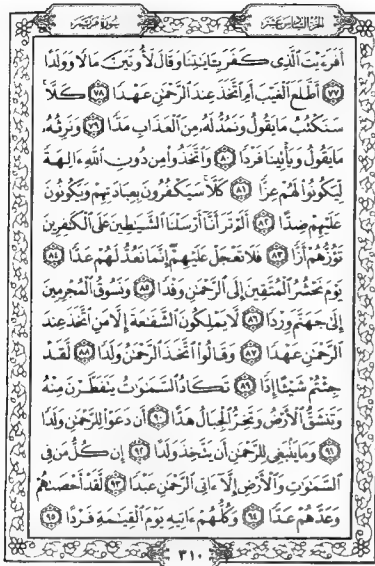 الجزء السادس عشر
سورة مريم
أَفَرَءَيْتَ ٱلَّذِى كَفَرَ بِـَٔايَٰتِنَا وَقَالَ لَأُوتَيَنَّ مَالًا وَوَلَدًا
٧٧ أَطَّلَعَ ٱلْغَيْبَ أَمِ ٱتَّخَذَ عِندَ ٱلرَّحْمَٰنِ عَهْدًا ٧٨ كَلَّا
سَنَكْتُبُ مَا يَقُولُ وَنَمُدُّ لَهُۥ مِنَ ٱلْعَذَابِ مَدًّا ٧٩ وَنَرِثُهُۥ
مَا يَقُولُ وَيَأْتِينَا فَرْدًا ٨٠ وَٱتَّخَذُوا۟ مِن دُونِ ٱللَّهِ ءَالِهَةً
لِّيَكُونُوا۟ لَهُمْ عِزًّا ٨١ كَلَّا سَيَكْفُرُونَ بِعِبَادَتِهِمْ وَيَكُونُونَ
عَلَيْهِمْ ضِدًّا ٨٢ أَلَمْ تَرَ أَنَّآ أَرْسَلْنَا ٱلشَّيَٰطِينَ عَلَى ٱلْكَٰفِرِينَ
تَؤُزُّهُمْ أَزًّا ٨٣ فَلَا تَعْجَلْ عَلَيْهِمْ إِنَّمَا نَعُدُّ لَهُمْ عَدًّا ٨٤
يَوْمَ نَحْشُرُ ٱلْمُتَّقِينَ إِلَى ٱلرَّحْمَٰنِ وَفْدًا ٨٥ وَنَسُوقُ ٱلْمُجْرِمِينَ
إِلَىٰ جَهَنَّمَ وِرْدًا ٨٦ لَّا يَمْلِكُونَ ٱلشَّفَٰعَةَ إِلَّا مَنِ ٱتَّخَذَ عِندَ
ٱلرَّحْمَٰنِ عَهْدًا ٨٧ وَقَالُوا۟ ٱتَّخَذَ ٱلرَّحْمَٰنُ وَلَدًا ٨٨ لَّقَدْ
جِئْتُمْ شَيْـًٔا إِدًّا ٨٩ تَكَادُ ٱلسَّمَٰوَٰتُ يَتَفَطَّرْنَ مِنْهُ
وَتَنشَقُّ ٱلْأَرْضُ وَتَخِرُّ ٱلْجِبَالُ هَدًّا ٩٠ أَن دَعَوْا۟ لِلرَّحْمَٰنِ وَلَدًا
٩١ وَمَا يَنۢبَغِى لِلرَّحْمَٰنِ أَن يَتَّخِذَ وَلَدًا ٩٢ إِن كُلُّ مَن فِى
ٱلسَّمَٰوَٰتِ وَٱلْأَرْضِ إِلَّآ ءَاتِى ٱلرَّحْمَٰنِ عَبْدًا ٩٣ لَّقَدْ أَحْصَىٰهُمْ
وَعَدَّهُمْ عَدًّا ٩٤ وَكُلُّهُمْ ءَاتِيهِ يَوْمَ ٱلْقِيَٰمَةِ فَرْدًا ٩٥
٣١٠